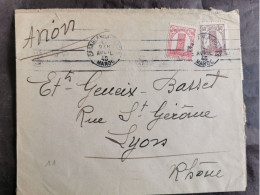 Avion
MAROC
Ets Geneix-Basset
Rue St Gérôme
Lyon
Rhône